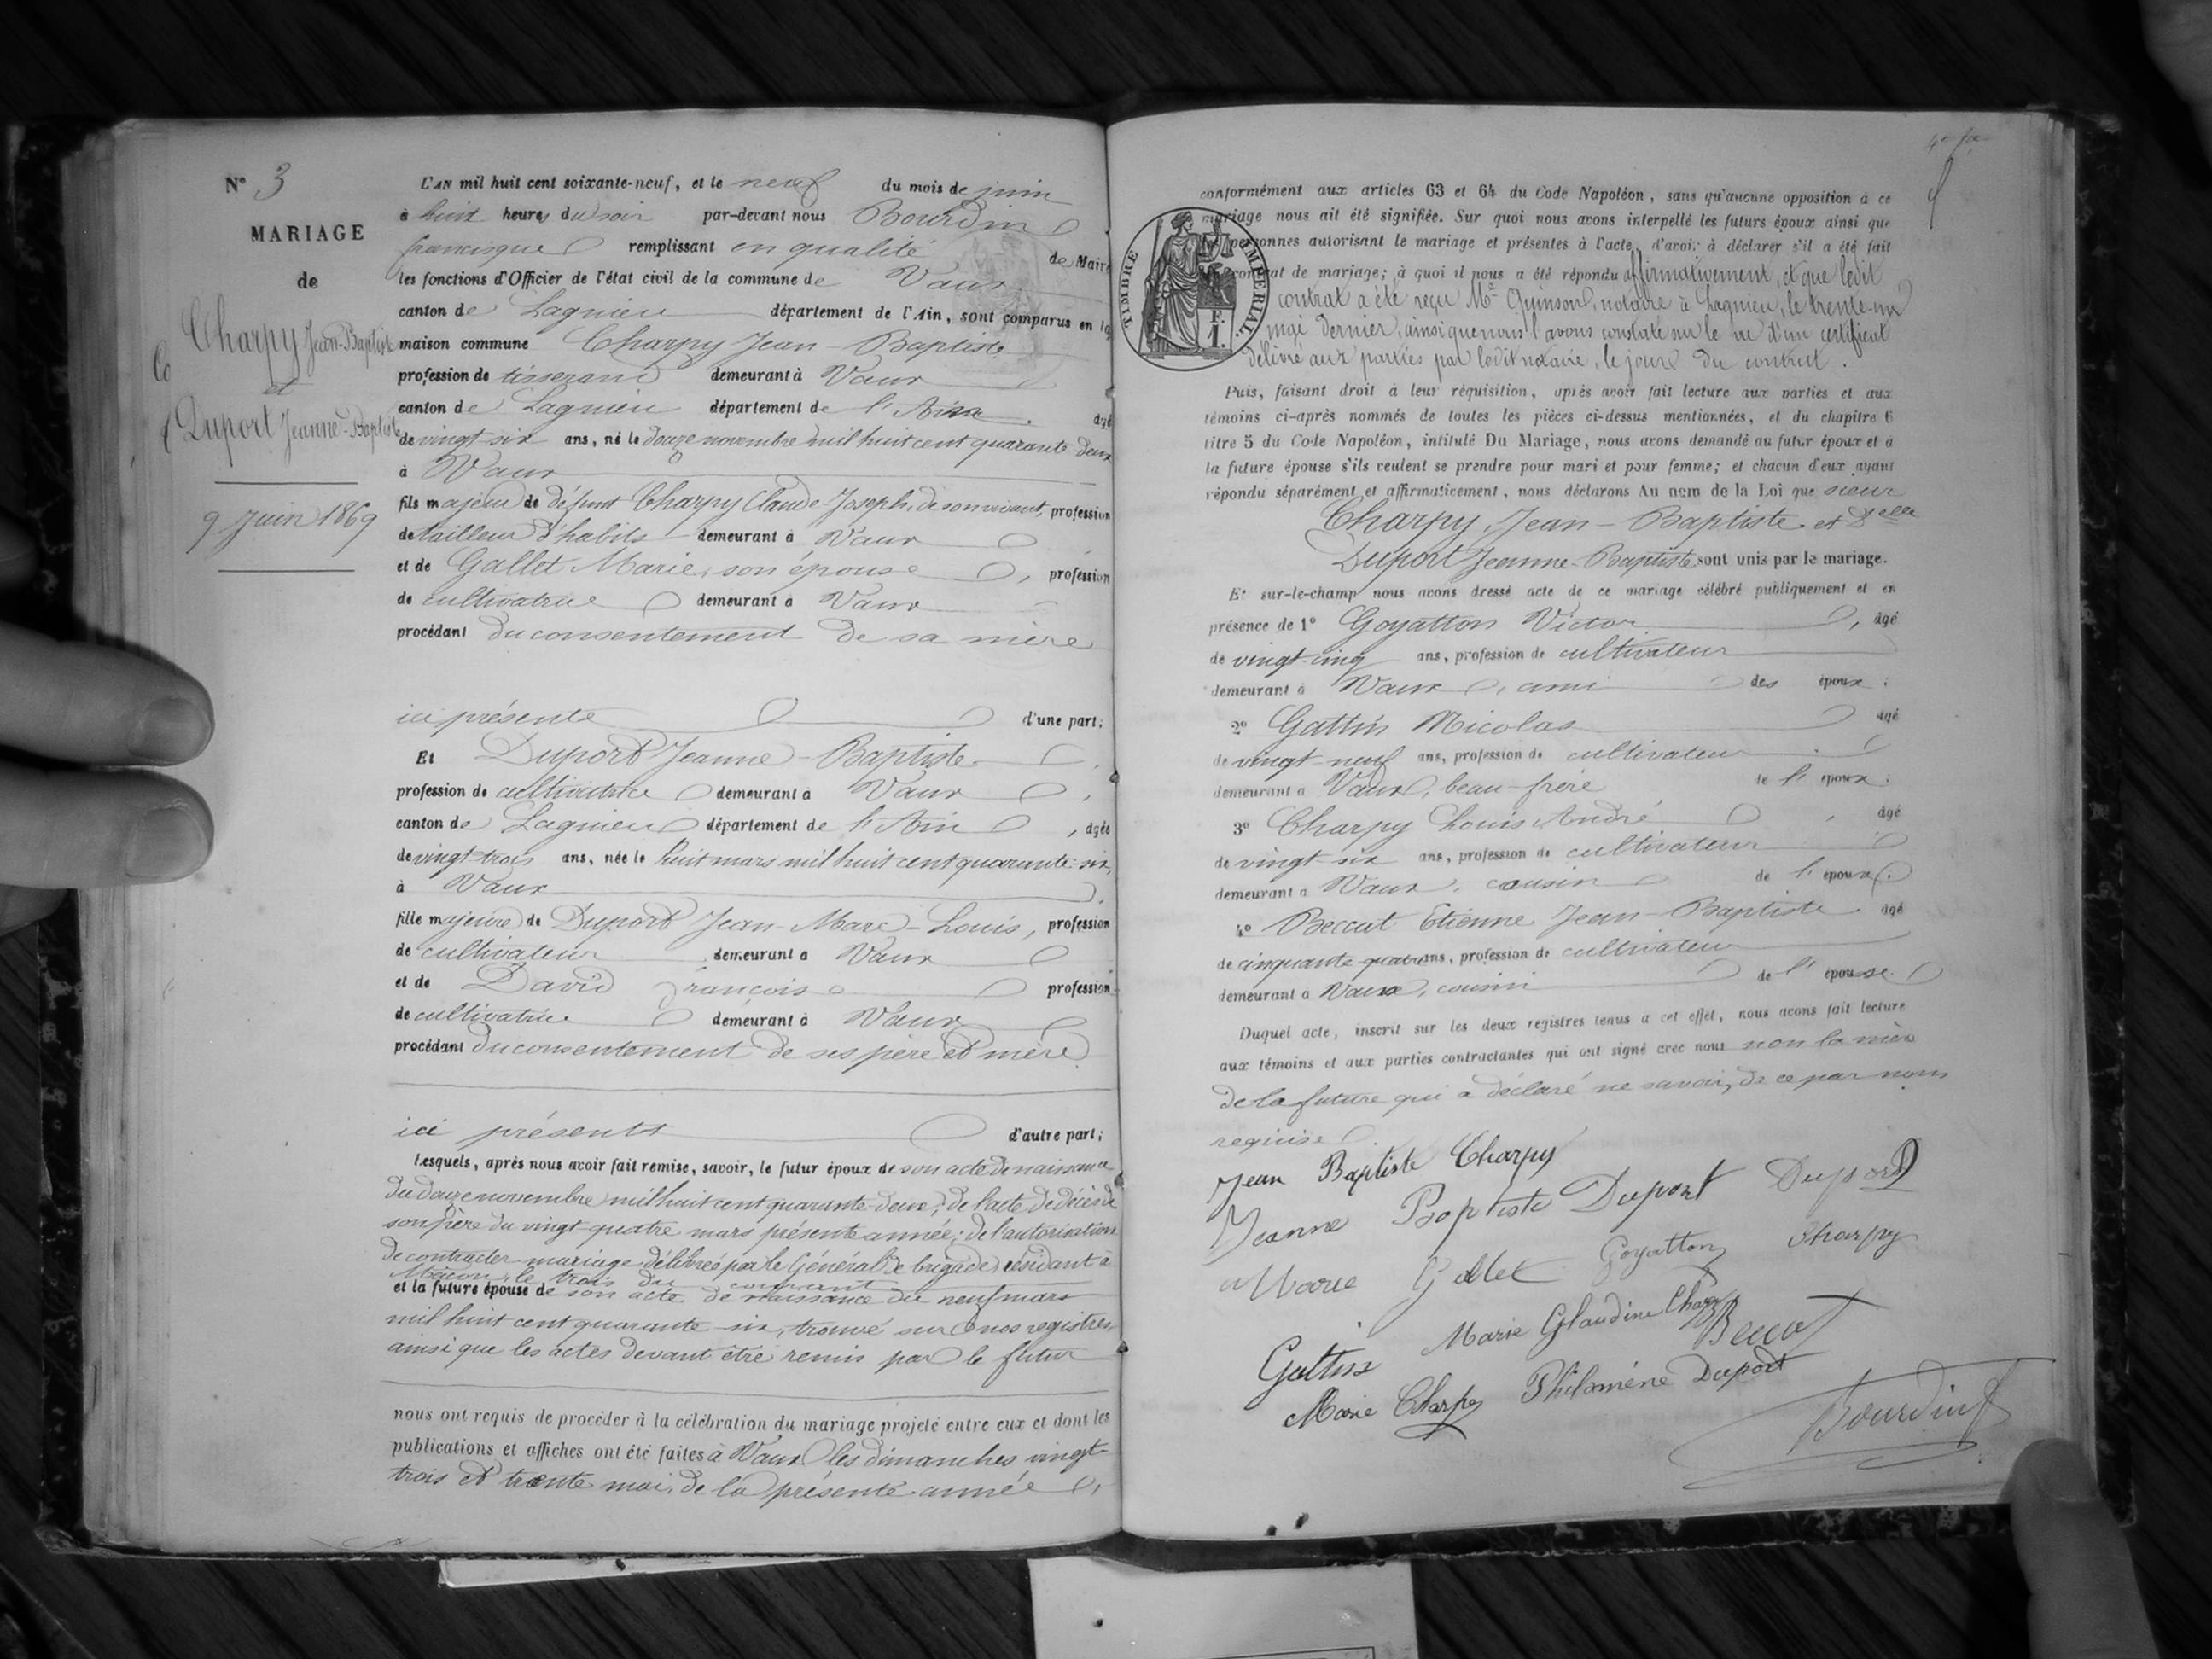 N° 3
MARIAGE
de
Charpy Jean-Baptiste
et
Duport Jeanne-Baptiste
9 Juin 1869
L'AN mil huit cent soixante-neuf, et le neuf du mois de juin
à huit heures du soir par-devant nous Bourdin
francisque remplissant en qualité de Maire
les fonctions d'Officier de l'état civil de la commune de Vaux
canton de Lagnieu département de l'Ain, sont comparus en la
maison commune Charpy Jean-Baptiste
profession de tisserand demeurant à Vaux
canton de Lagnieu département de l'Ain âgé
de vingt-six ans, né le douze novembre mil huit cent quarante-deux
à Vaux
fils majeur de défunt Charpy Claude Joseph, de son vivant, profession
de tailleur d'habits demeurant à Vaux
et de Gallet Marie, son épouse, profession
de cultivatrice demeurant à Vaux
procédant du consentement de sa mère
ici présente d'une part;
Et Duport Jeanne-Baptiste
profession de cultivatrice demeurant à Vaux,
canton de Lagnieu département de l'Ain, âgée
de vingt-trois ans, née le huit mars mil huit cent quarante-six,
à Vaux
fille majeure de Duport Jean-Marc-Louis, profession
de cultivateur demeurant à Vaux
et de David Françoise profession
de cultivatrice demeurant à Vaux
procédant du consentement de ses père et mère
ici présents d'autre part;
Lesquels, après nous avoir fait remise, savoir, le futur époux de son acte de naissance
du douze novembre mil huit cent quarante-deux; de l'acte de décès de
son père du vingt-quatre mars présente année; de l'autorisation
de contracter mariage délivrée par le Général de brigade résidant à
Mâcon, le trois du courant
et la future épouse de son acte de naissance du neuf mars
mil huit cent quarante-six, trouvé sur nos registres,
ainsi que les actes devant être remis par le futur
nous ont requis de procéder à la célébration du mariage projeté entre eux et dont les
publications et affiches ont été faites à Vaux les dimanches vingt-
trois et trente mai, de la présente année,
conformément aux articles 63 et 64 du Code Napoléon, sans qu'aucune opposition à ce
mariage nous ait été signifiée. Sur quoi nous avons interpellé les futurs époux ainsi que
personnes autorisant le mariage et présentes à l'acte, d'avoir à déclarer s'il a été fait
contrat de mariage; à quoi il nous a été répondu affirmativement, et que ledit
contrat a été reçu Me Quinson, notaire à Lagnieu, le trente-un
mai dernier, ainsi que nous l'avons constaté sur le vu d'un certificat
délivré aux parties par ledit notaire, le jour du contrat.
TIMBRE IMPÉRIAL
F.
1.
Puis, faisant droit à leur réquisition, après avoir fait lecture aux parties et aux
témoins ci-après nommés de toutes les pièces ci-dessus mentionnées, et du chapitre 6
titre 5 du Code Napoléon, intitulé Du Mariage, nous avons demandé au futur époux et à
la future épouse s'ils veulent se prendre pour mari et pour femme; et chacun d'eux ayant
répondu séparément et affirmativement, nous déclarons Au nom de la Loi que sieur
Charpy, Jean-Baptiste et Delle
Duport Jeanne-Baptiste sont unis par le mariage.
Et sur-le-champ nous avons dressé acte de ce mariage célébré publiquement et en
présence de 1° Goyatton Victor, âgé
de vingt-cinq ans, profession de cultivateur
demeurant à Vaux, ami des époux.
2° Gattin Nicolas âgé
de vingt-neuf ans, profession de cultivateur
demeurant à Vaux, beau-frère de l'époux.
3° Charpy Louis André âgé
de vingt-six ans, profession de cultivateur
demeurant à Vaux, cousin de l'époux.
4° Beccat Etienne Jean-Baptiste âgé
de cinquante-quatre ans, profession de cultivateur
demeurant à Vaux, cousin de l'épouse
Duquel acte, inscrit sur les deux registres tenus à cet effet, nous avons fait lecture
aux témoins et aux parties contractantes qui ont signé avec nous non la mère
de la future qui a déclaré ne savoir, de ce par nous
requise
Jean Baptiste Charpy
Jeanne Baptiste Duport Duport
Marie Gallet Goyatton Charpy
Gattin Marie Glaudine Charpy Beccat
Marie Charpy Philomène Duport
Bourdin f